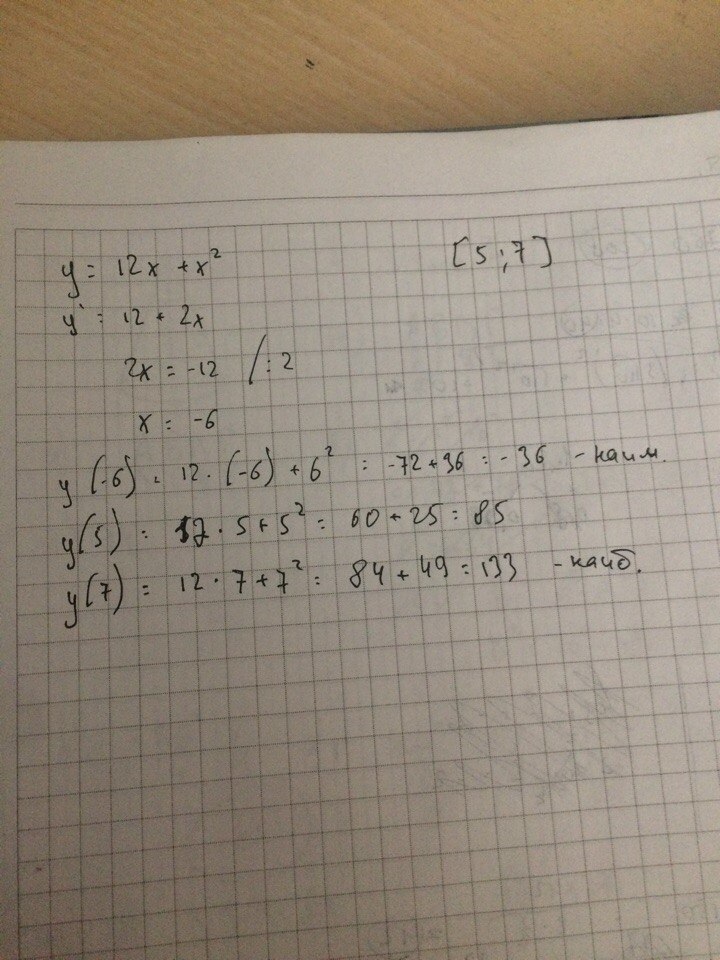 y = 12x + x² [5;7]
y' = 12 + 2x
2x = -12 /:2
x = -6
y(-6) = 12·(-6) + 6² = -72+36 = -36 - наим.
y(5) = 12·5+5² = 60+25 = 85
y(7) = 12·7+7² = 84+49 = 133 - наиб.